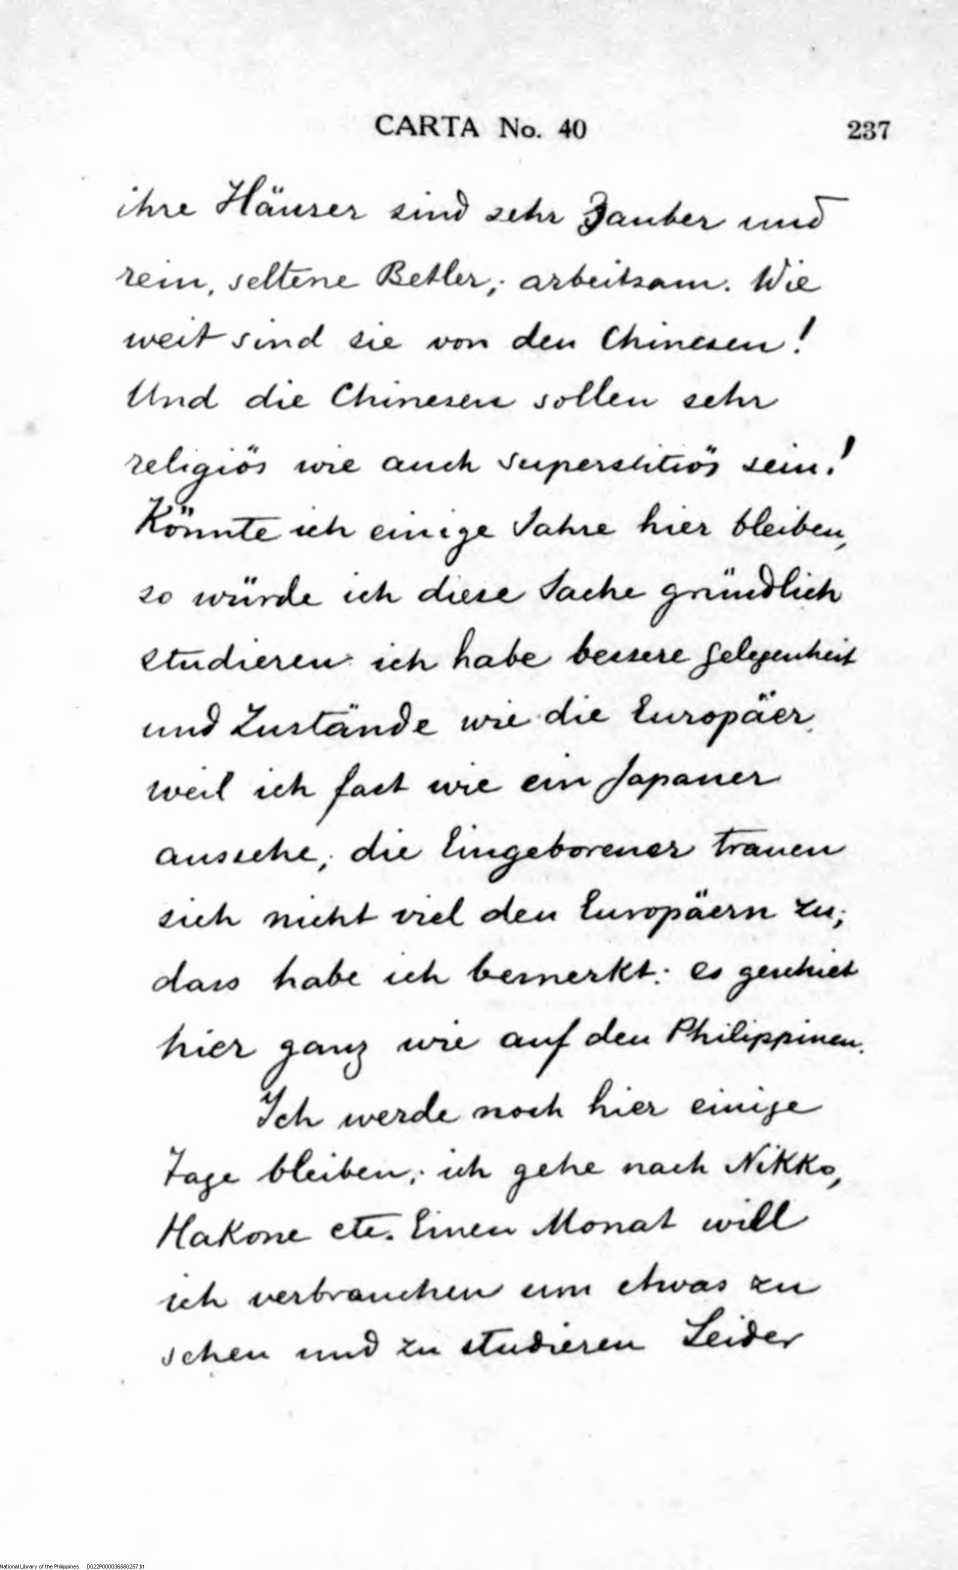 CARTA No. 40 237
ihre Häuser sind sehr Zauber und
rein, seltene Betler; arbeitsam. Wie
weit sind sie von den Chinesen!
Und die Chinesen sollen sehr
religiös wie auch superstitiös sein!
Könnte ich einige Jahre hier bleiben,
so würde ich diese Sache gründlich
studieren ich habe bessere Gelegenheit
und Zustände wie die Europäer,
weil ich fast wie ein Japaner
aussehe; die Eingeborener trauen
sich nicht viel den Europäern zu;
dass habe ich bemerkt: es geschiet
hier ganz wie auf den Philippinen.
Ich werde noch hier einige
Tage bleiben; ich gehe nach Nikko,
Hakone etc. Einen Monat will
ich verbrauchen um etwas zu
sehen und zu studieren Leider
National Library of the Philippines